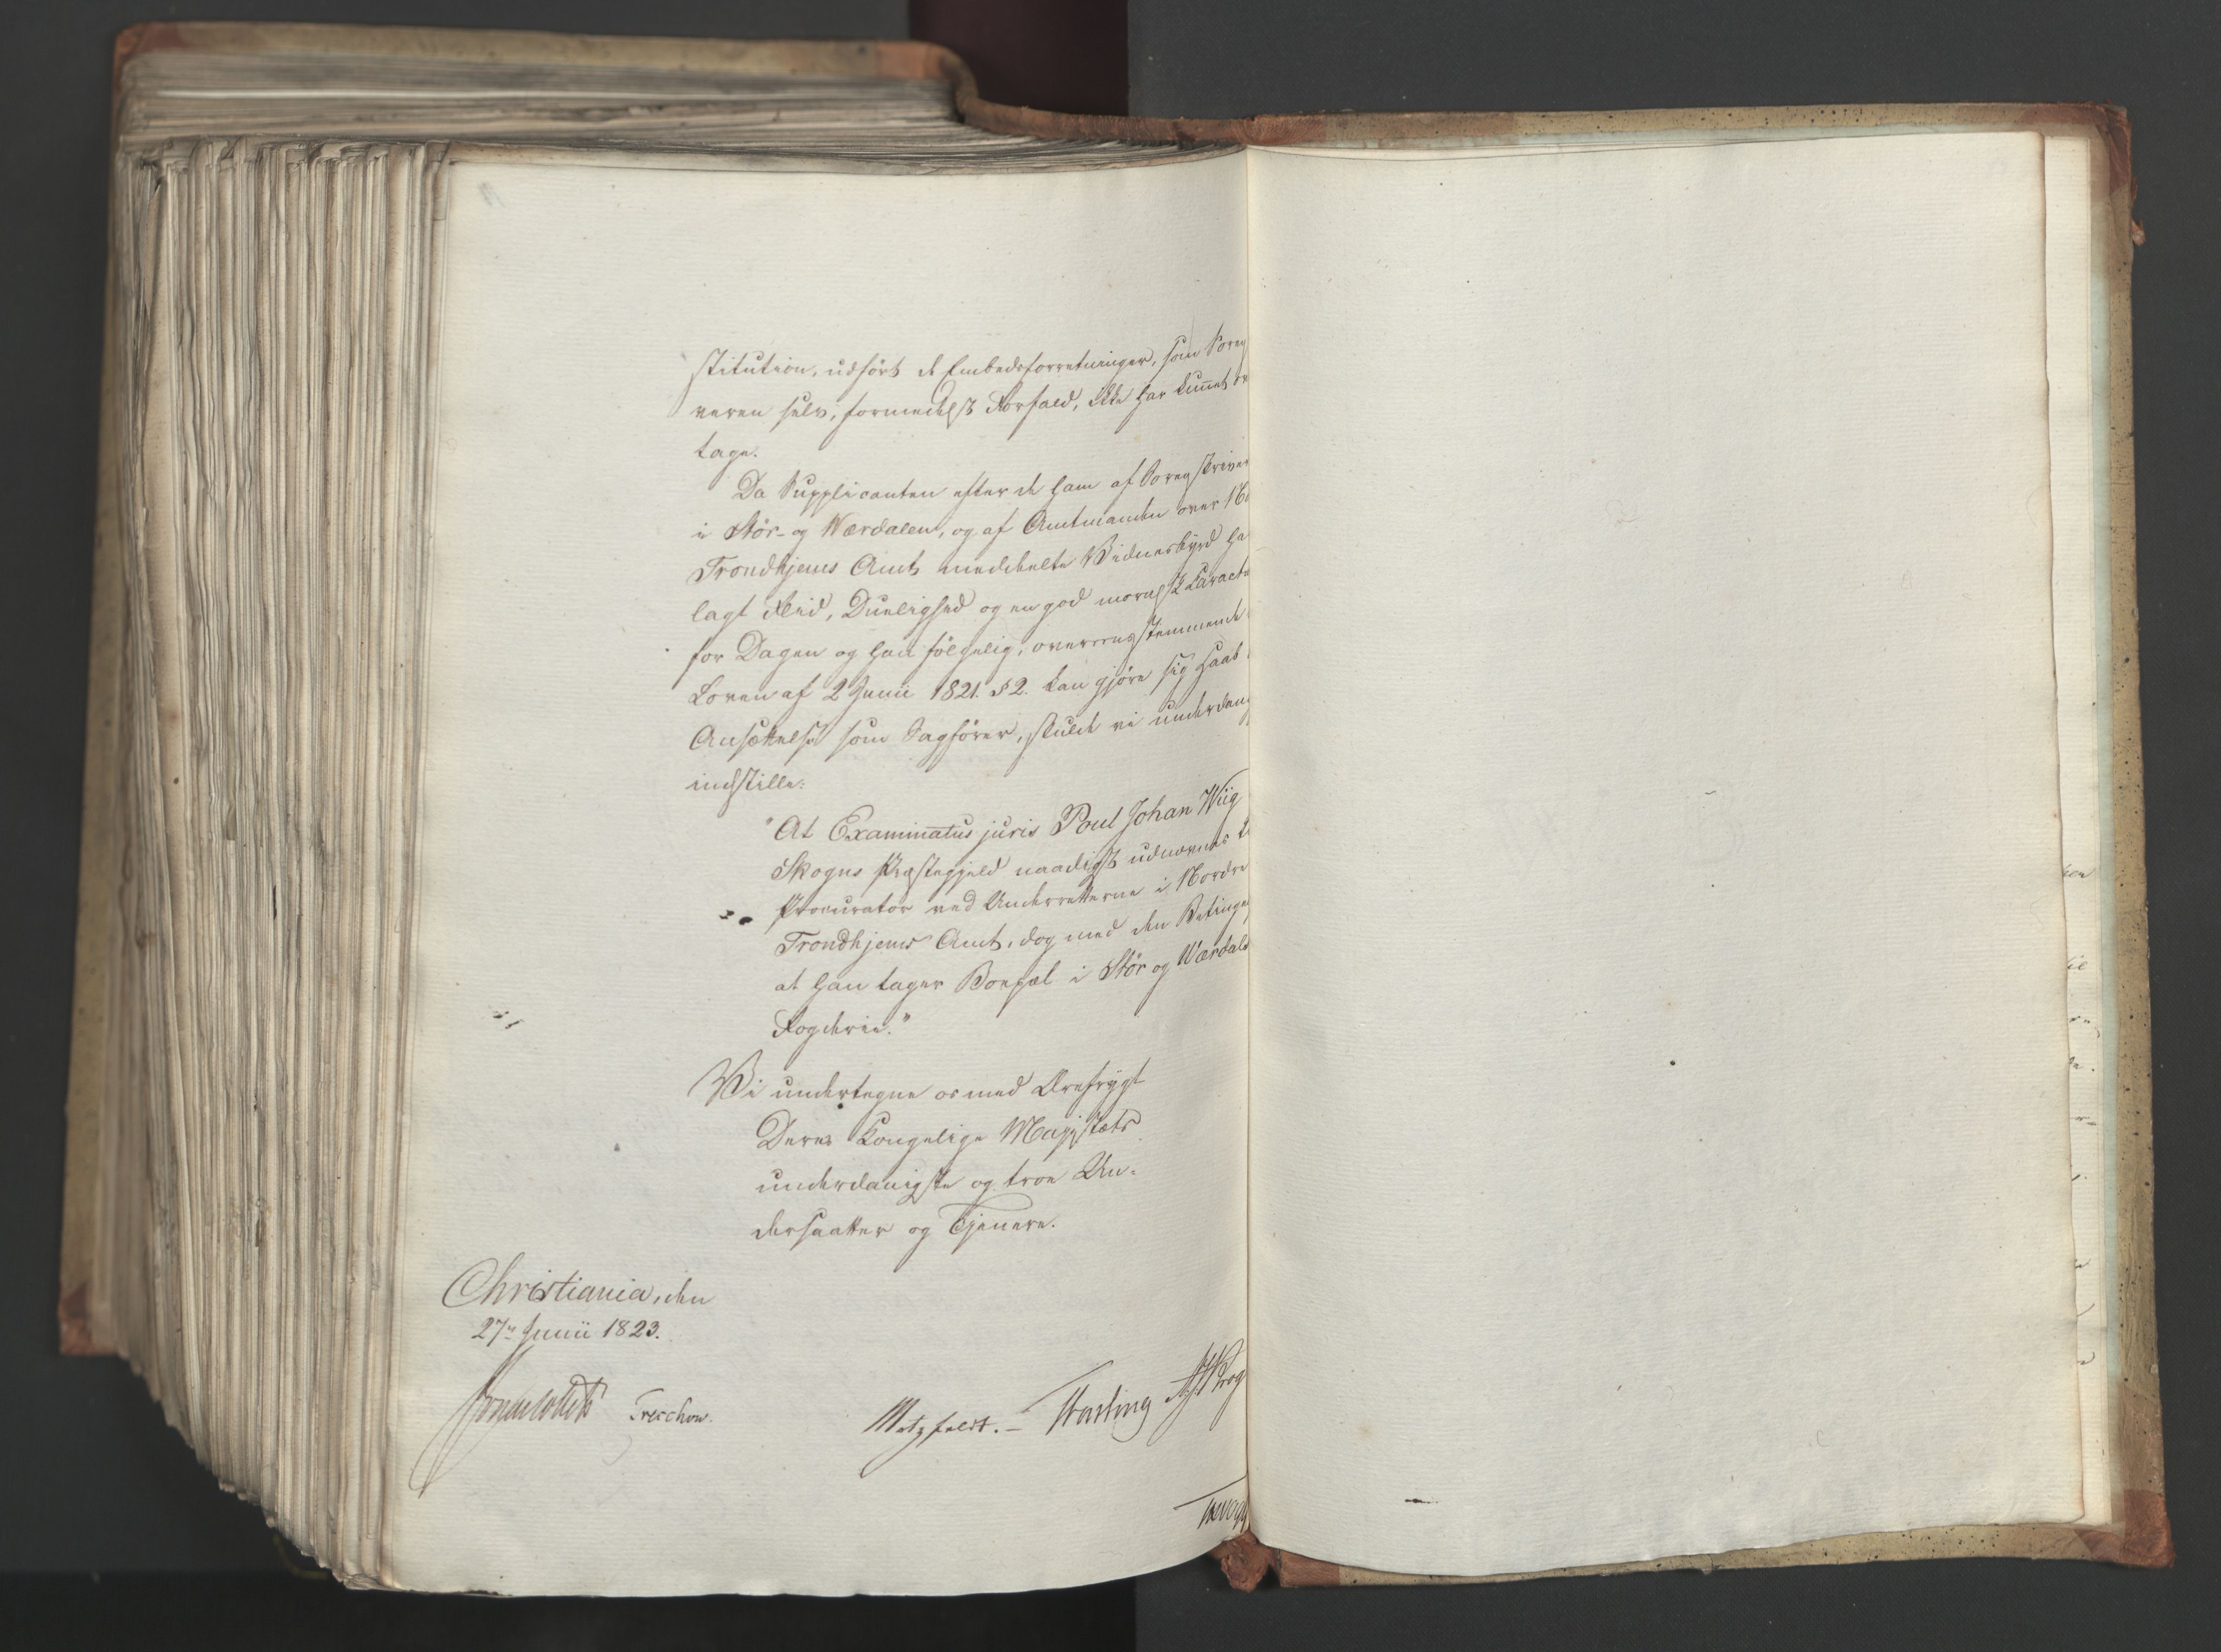 stitution, udført de Embedsforretninger, som Soren
veren selv, formedelst Forfald, ikke har kunnet
tage.
Da Supplicanten efter de ham af Sorenskriver
i Stør- og Værdalen, og af Amtmanden over No
Trondhjems Amt meddeelte Vidnesbyrd ha
lagt Flid, Duelighed og en god moralsk Caracte
for Dagen og han følgelig, overeensstemmende
Loven af 2 Junii 1821. § 2. kan gjøre sig Haab
Ansættelse som Sagfører, skulde vi underdan
indstille:
"At Examinatus juris Poul Johan Wiig
Skogns Præstegjeld naadigst udnævnes
Procurator ved Underretterne i Nordre
Trondhjems Amt, dog med den Betinge
at han tager Bopæl i Stør og Værdale
Fogderie."
Vi undertegne os med Ærefrygt
Deres Kongelige Majestæts
underdanigste og troe Un-
dersaatter og Tjenere.
Christiania, den
27de Junii 1823.
Treschow.
Motzfeldt. – Fasting Krog